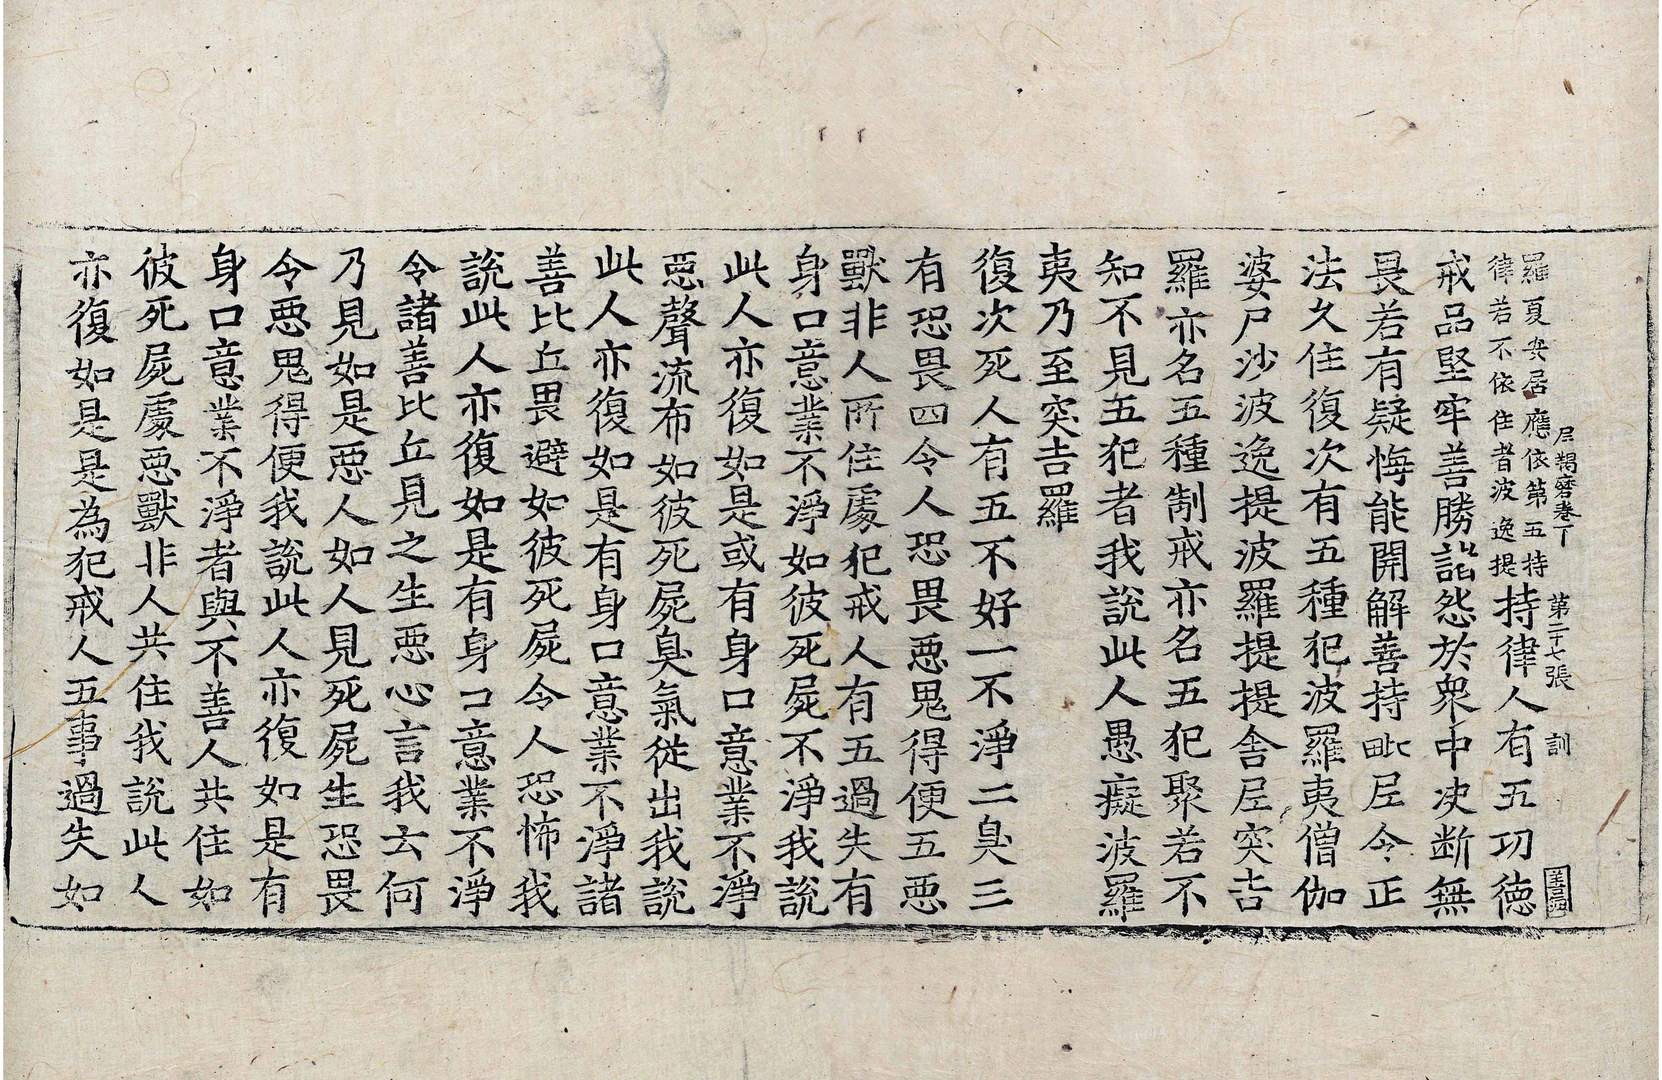 尼羯磨卷下 第二十七張 訓
羅夏安居應依第五持
律若不依住者波逸提
持律人有五功德
戒品堅牢善勝詣怨於衆中决斷無
畏若有疑悔能開解善持毗尼令正
法久住復次有五種犯波羅夷僧伽
婆尸沙波逸提波羅提提舍尼突吉
羅亦名五種制戒亦名五犯聚若不
知不見五犯者我說此人愚癡波羅
夷乃至突吉羅
復次死人有五不好一不淨二臭三
有恐畏四令人恐畏惡鬼得便五惡
獸非人所住處犯戒人有五過失有
身口意業不淨如彼死屍不淨我說
此人亦復如是或有身口意業不淨
惡聲流布如彼死屍臭氣從出我說
此人亦復如是有身口意業不淨諸
善比丘畏避如彼死屍令人恐怖我
說此人亦復如是有身口意業不淨
令諸善比丘見之生惡心言我云何
乃見如是惡人如人見死屍生恐畏
令惡鬼得便我說此人亦復如是有
身口意業不淨者與不善人共住如
彼死屍處惡獸非人共住我說此人
亦復如是是為犯戒人五事過失如